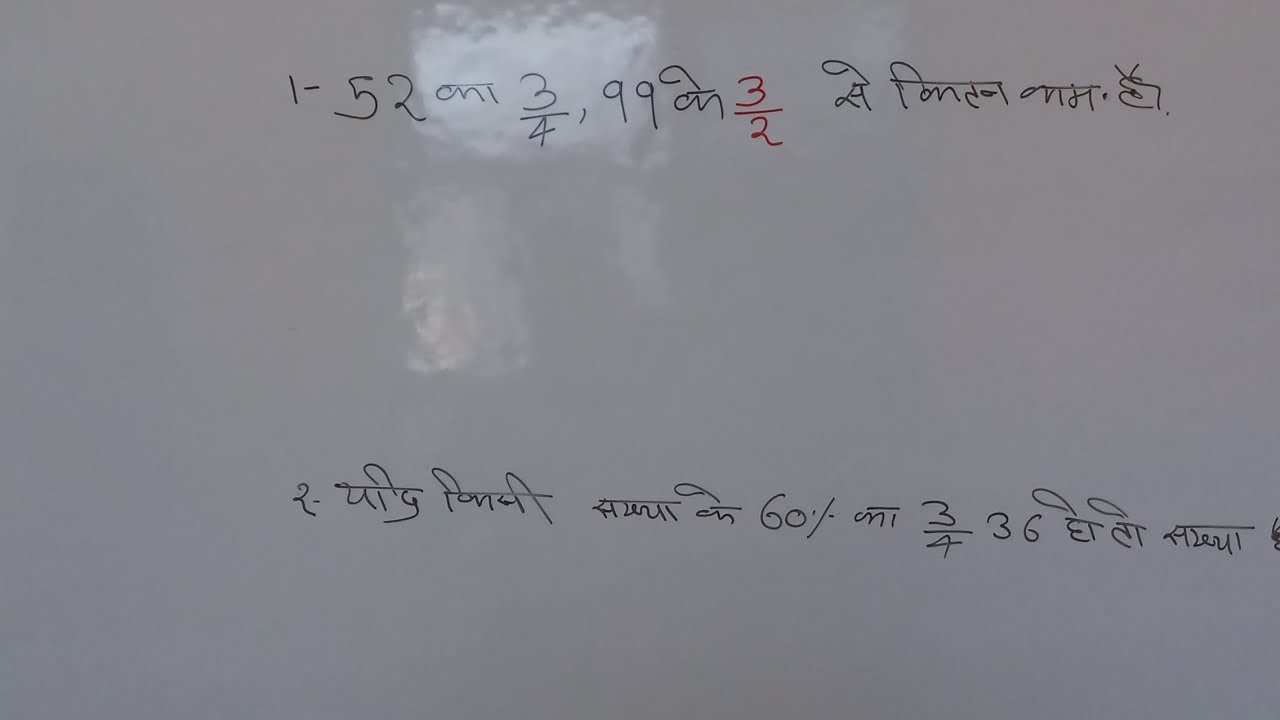 1- 52 का 3/4, 99 के 3/2 से कितन काम. है।
2- यदि किसी सख्या के 60% का 3/4 36 हो तो सख्या